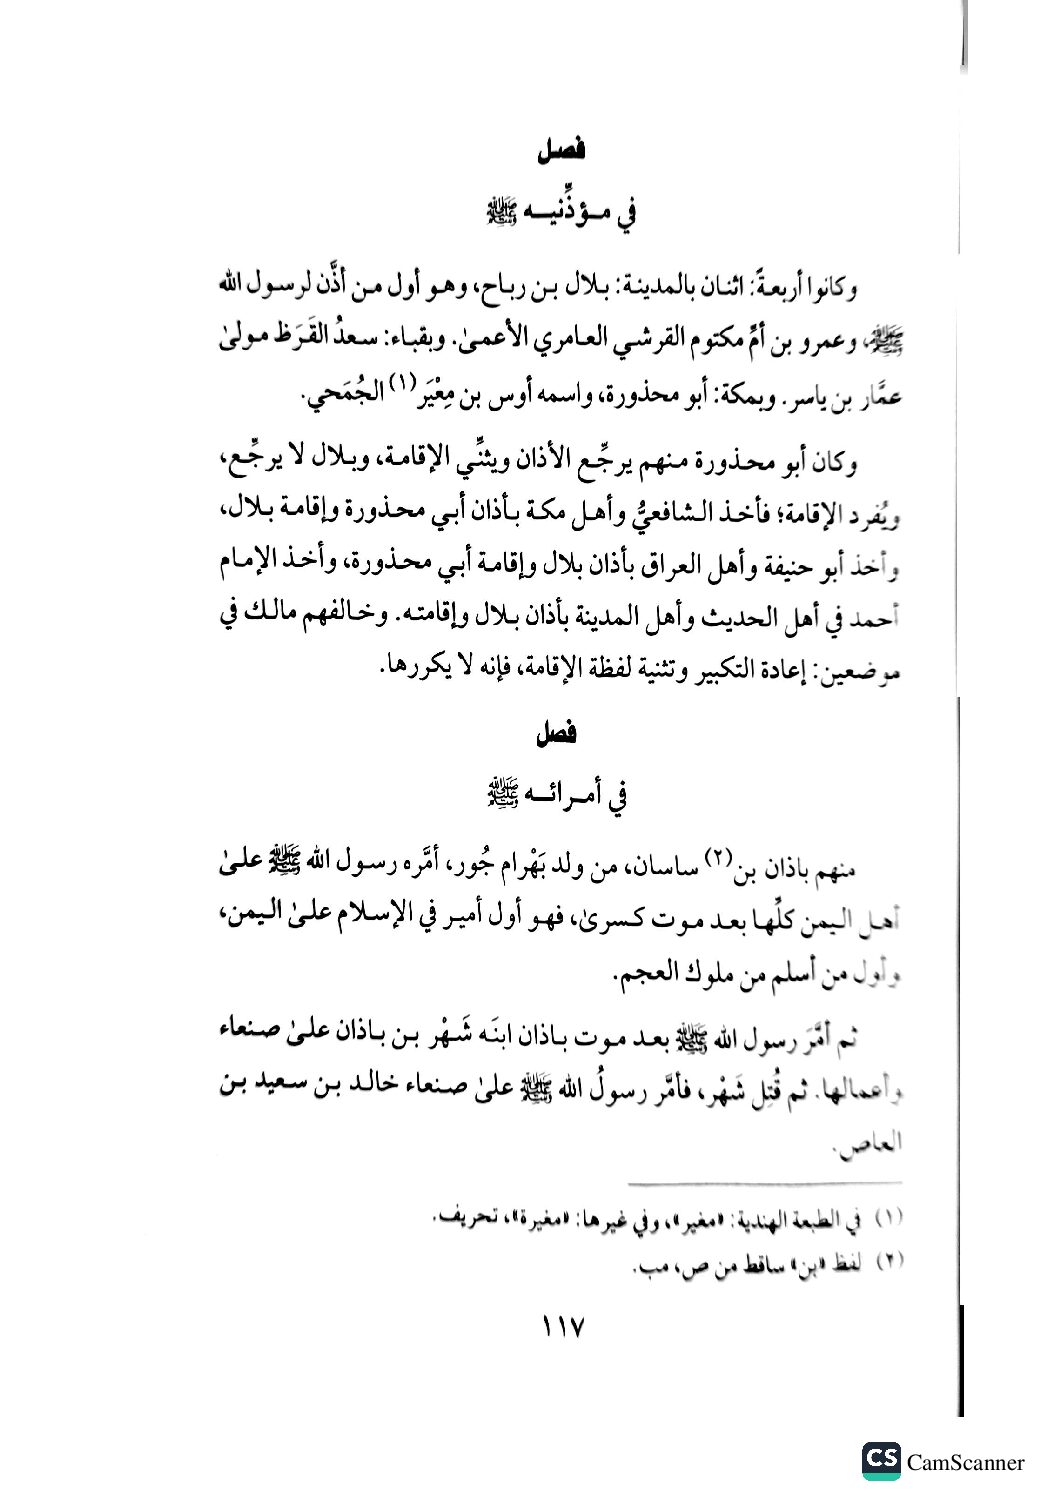 فصل
في مـؤذِّنيـه ﷺ
وكانوا أربعةً: اثنان بالمدينة: بلال بن رباح، وهو أول من أذَّن لرسول الله
ﷺ، وعمرو بن أمِّ مكتوم القرشي العامري الأعمىٰ. وبقباء: سعدُ القَرَظ مولىٰ
عمَّار بن ياسر. وبمكة: أبو محذورة، واسمه أوس بن مِعْيَر(١) الجُمَحي.
وكان أبو محذورة منهم يرجِّع الأذان ويثنِّي الإقامة، وبلال لا يرجِّع،
ويُفرد الإقامة؛ فأخذ الشافعيُّ وأهل مكة بأذان أبي محذورة وإقامة بلال،
وأخذ أبو حنيفة وأهل العراق بأذان بلال وإقامة أبي محذورة، وأخذ الإمام
أحمد في أهل الحديث وأهل المدينة بأذان بلال وإقامته. وخالفهم مالك في
موضعين: إعادة التكبير وتثنية لفظة الإقامة، فإنه لا يكررها.
فصل
في أمـرائـه ﷺ
منهم باذان بن(٢) ساسان، من ولد بَهْرام جُور، أمَّره رسول الله ﷺ علىٰ
أهل اليمن كلِّها بعد موت كسرىٰ، فهو أول أمير في الإسلام علىٰ اليمن،
وأول من أسلم من ملوك العجم.
ثم أمَّرَ رسول الله ﷺ بعد موت باذان ابنَه شَهْر بن باذان علىٰ صنعاء
وأعمالها. ثم قُتِل شَهْر، فأمَّر رسولُ الله ﷺ علىٰ صنعاء خالد بن سعيد بن
العاص.
(١) في الطبعة الهندية: «مغير»، وفي غيرها: «مغيرة»، تحريف.
(٢) لفظ «بن» ساقط من ص، مب.
١١٧
CS CamScanner